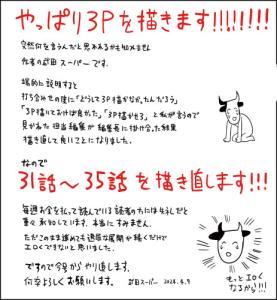 やっぱり3Pを描きます!!!!!!!!
突然何を言うんだと思われるかも知れません
作者の武田スーパーです。
端的に説明すると
打ち合わせの度に「どうして3P描かなかったんだろう」
「3P描いておけば良かった」「3P描かせろ」と私が言うので
見かねた担当編集が編集長に掛け合った結果
描き直して良いことになりました。
なので
31話~35話を描き直します!!!
毎週お金を払って読んでいる読者の方には失礼だと
重々承知しています。本当にすみません。
ただこのまま進めても退屈な展開が続くだけで
エロくできないと思いました。
ですので今号からやり直します。
何卒よろしくお願いします。 武田スーパー 2024.4.9
もっとエロく
なるから!!!